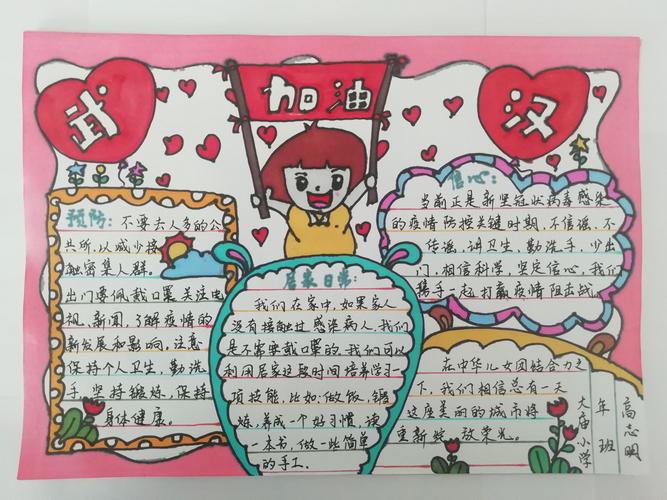 武
加油
汉
预防：不要去人多的公
共所，以减少接
触密集人群。
出门要佩戴口罩，关注电
视、新闻，了解疫情的
新发展和影响，注意
保持个人卫生，勤洗
手，坚持锻炼，保持
身体健康。
居家日常：
我们在家中，如果家人
没有接触过感染病人，我们
是不需要戴口罩的。我们可以
利用居家这段时间培养学习一
项技能，比如，做饭，锻
炼，养成一个好习惯，读
一本书，做一些简单
的手工。
信心：
当前正是新冠状病毒感染
的疫情防控关键时期，不信谣、不
传谣、讲卫生，勤洗手，少出
门，相信科学，坚定信心，我们
携手一起打赢疫情阻击战
在中华儿女团结合力之
下，我们相信总有一天
这座美丽的城市将
重新绽放荣光。
大庙小学
年班
高志明